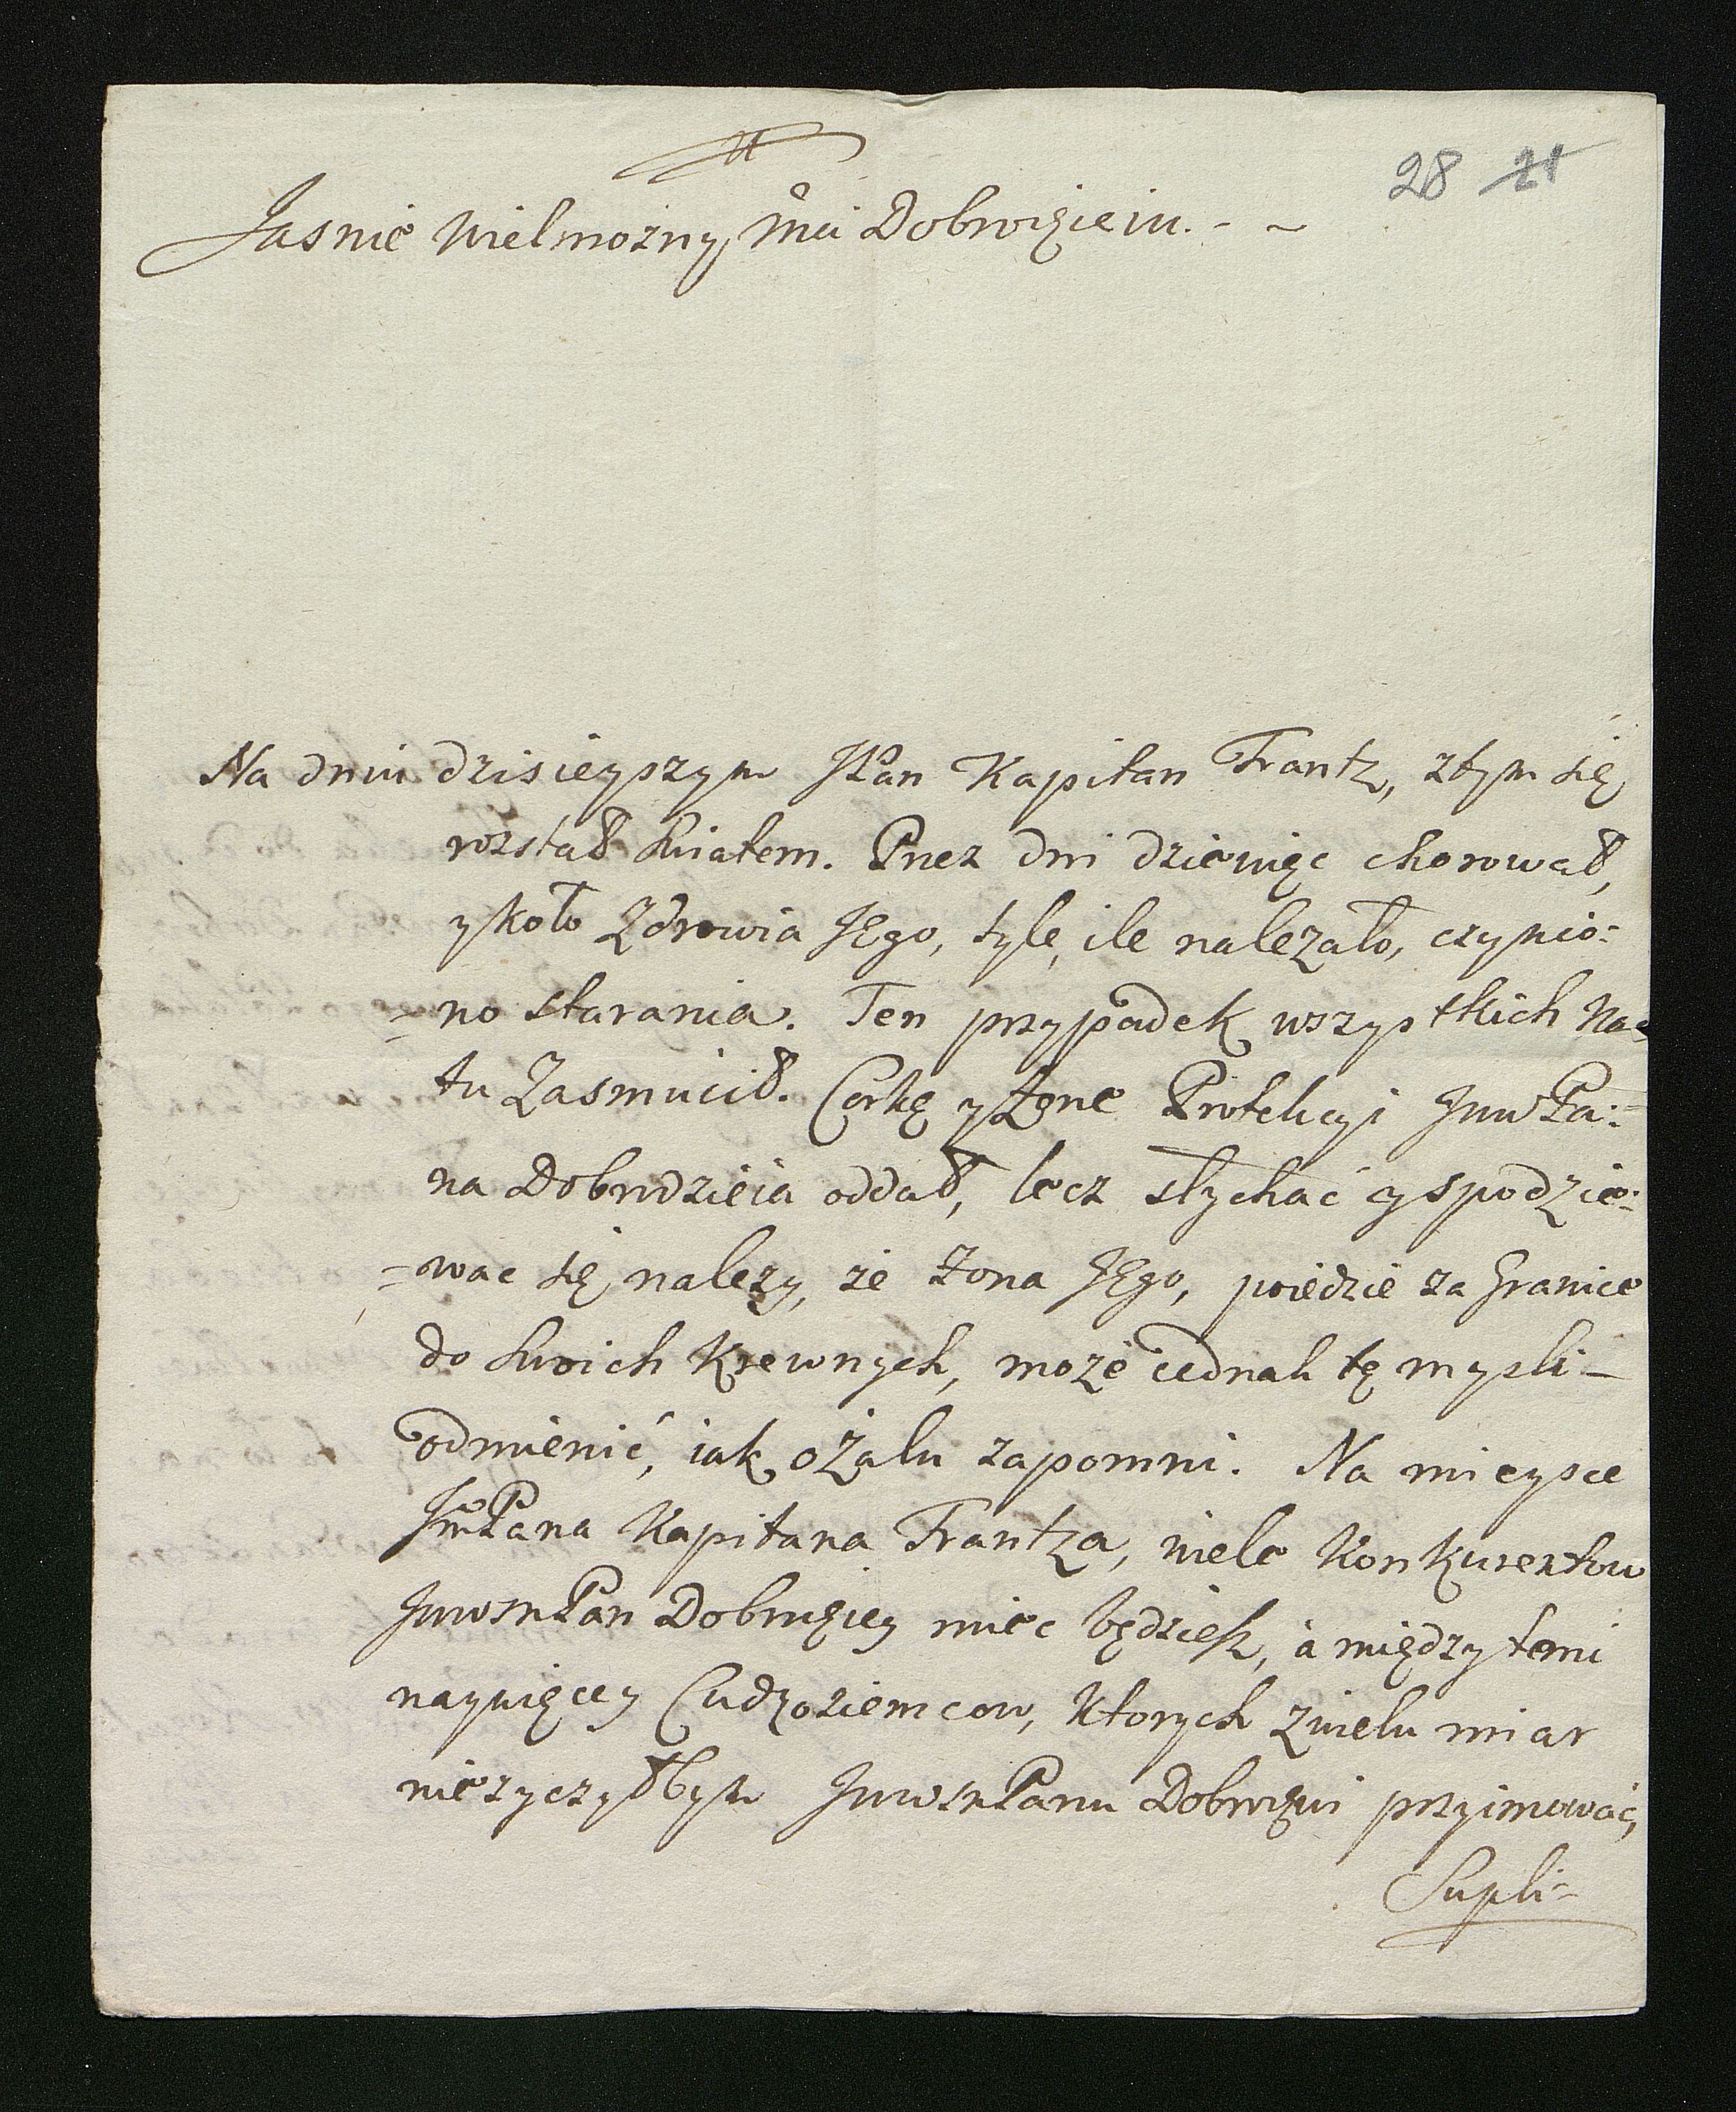 28 21
Jasnie Wielmozny Mci Dobrodzieiu. - ~
Na dniu dzisieyszym JPan Kapitan Frantz, z tym się
rozstał Swiatem. Przez dni dziewięc chorował,
y koło Zdrowia JEgo, tyle, ile nalezało, czynio=
=no starania. Ten przypadek wszystkich Nas
tu Zasmucił. Corkę y Zonę Protekcyi JwWPa:=
na Dobrodzieia oddał, lecz słychać y spodzie:=
=wac się nalezy, ze Zona JEgo, poiedzie za Granice
do Swoich Krewnych, moze iednak tę mysli -
odmienić, iak o Zalu zapomni. Na mieysce
JmPana Kapitana Frantza, wiele Konkurentow
JwWmPan Dobrodziey miec będziesz, a między temi
naywięcey Cudzoziemcow, Ktorych z wielu miar
nie zyczyłbym JwWmPanu Dobrodzwi przyimować,
Supli=